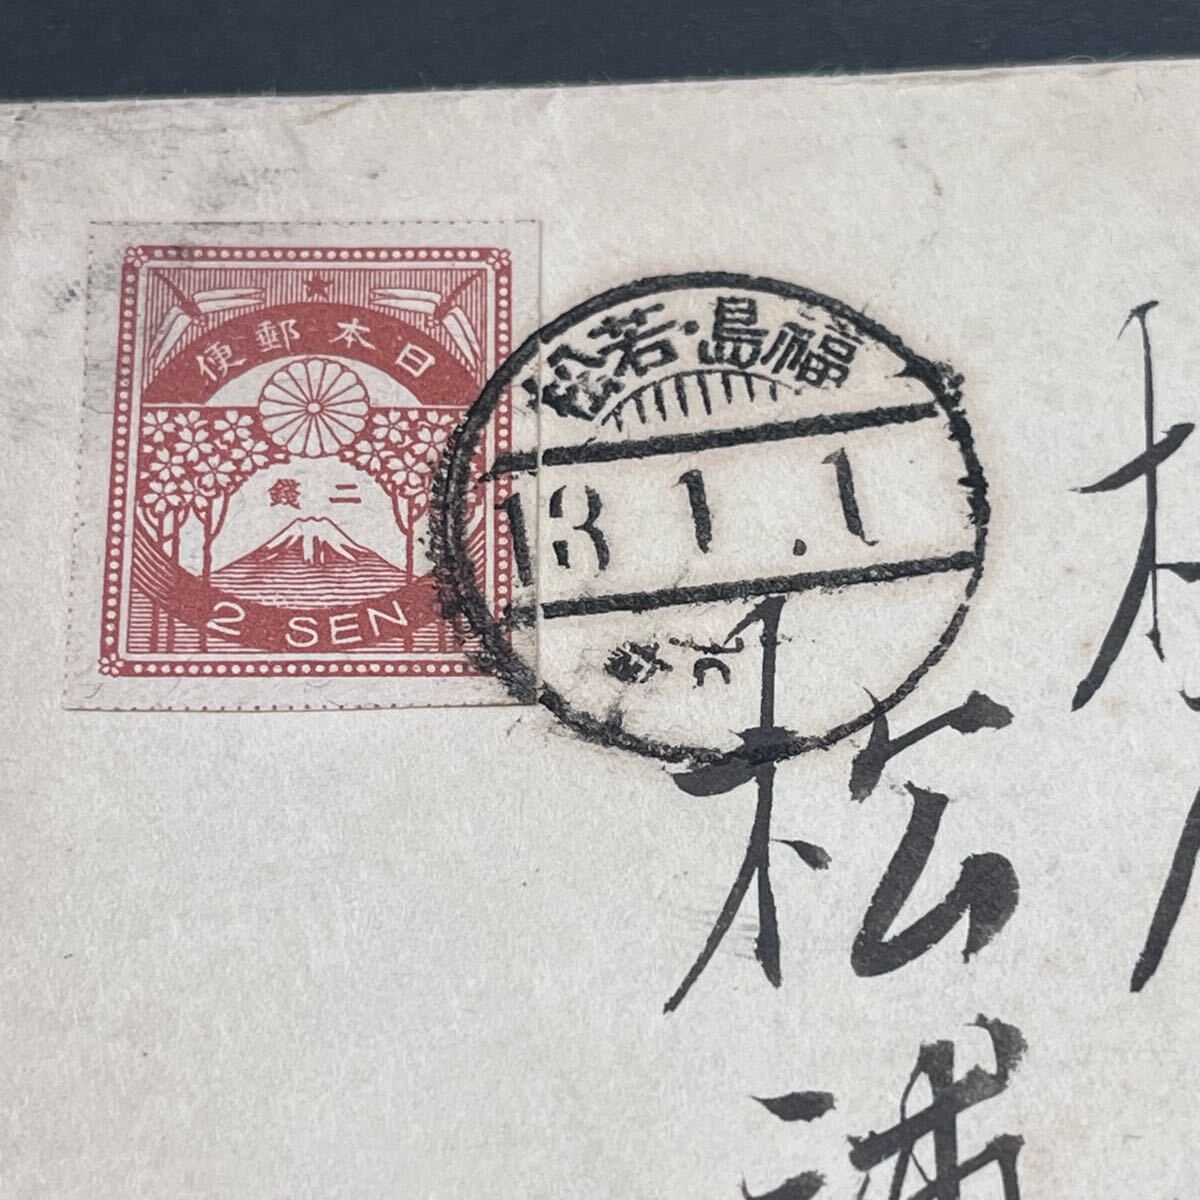 日本郵便
二錢
2 SEN
福島・若松
13.1.1
松
浦